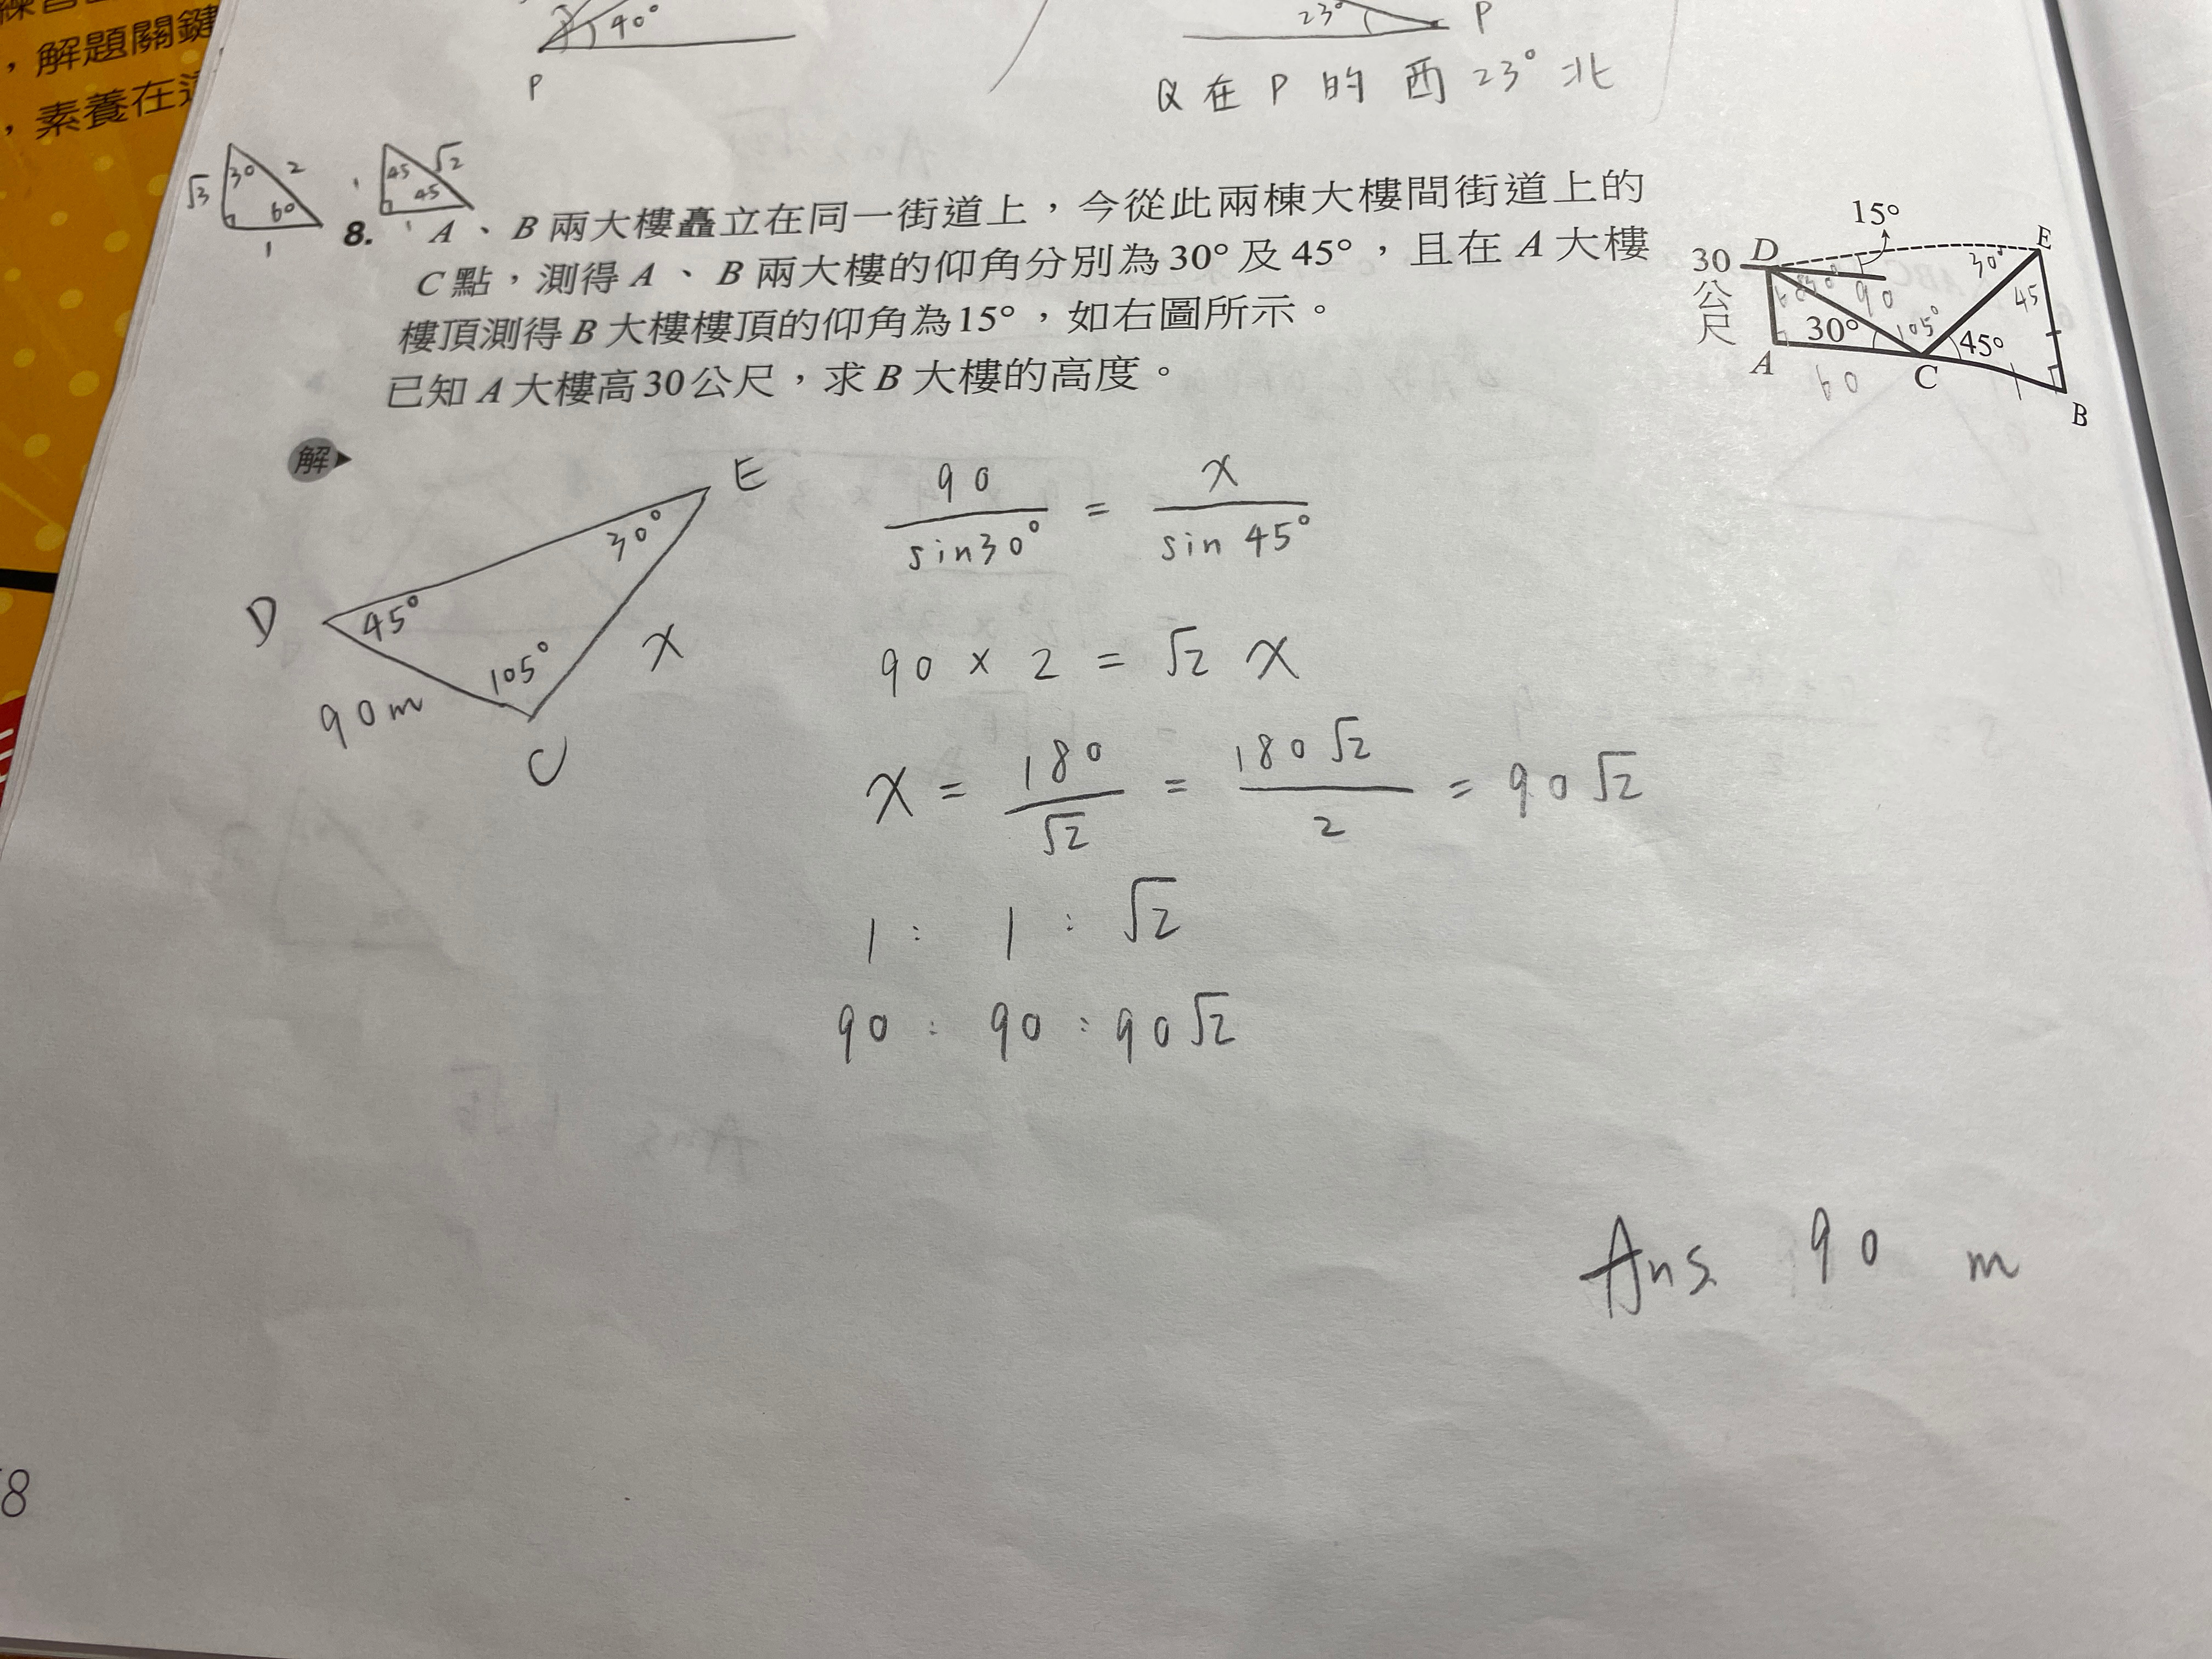 ，解題關鍵
，素養在
40°
P
23°
P
Q 在 P 的 西 23° 北
√3 30 2 60 1
1 45 √2 45 1
8. A、B 兩大樓矗立在同一街道上，今從此兩棟大樓間街道上的
C 點，測得 A、B 兩大樓的仰角分別為 30° 及 45°，且在 A 大樓
樓頂測得 B 大樓樓頂的仰角為 15°，如右圖所示。
已知 A 大樓高 30 公尺，求 B 大樓的高度。
15°
30 公尺
D
E
30°
90
45
30°
105°
45°
A
60
C
B
解
E
30°
D
45°
105°
x
90m
C
90/sin30° = x/sin 45°
90 × 2 = √2 x
x = 180/√2 = 180√2/2 = 90√2
1 : 1 : √2
90 : 90 : 90√2
Ans 90 m
8